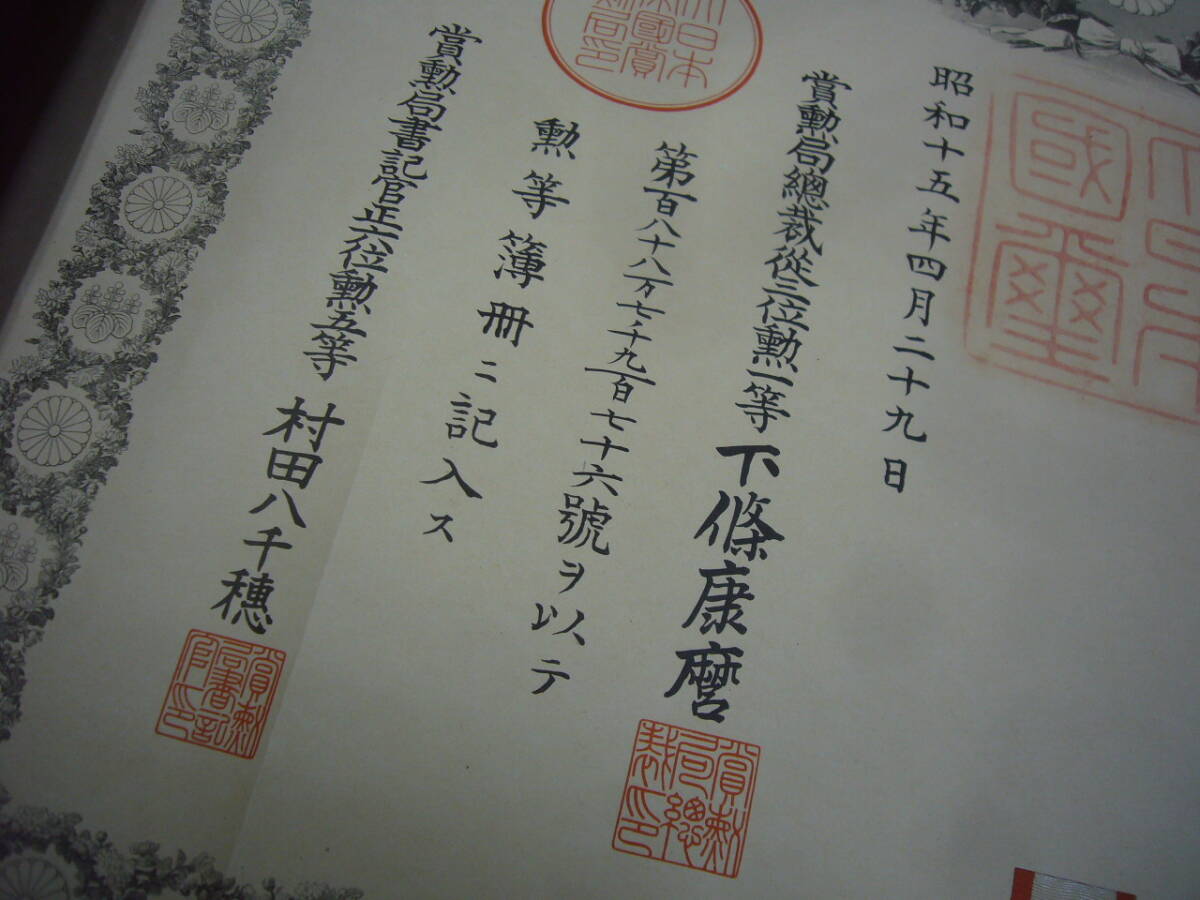 昭和十五年四月二十九日
賞勲局總裁從三位勲一等下條康麿
第百八十八万七千九百七十六號ヲ以テ
勲等簿冊ニ記入ス
賞勲局書記官正六位勲五等村田八千穗
國璽
賞勲局總裁印